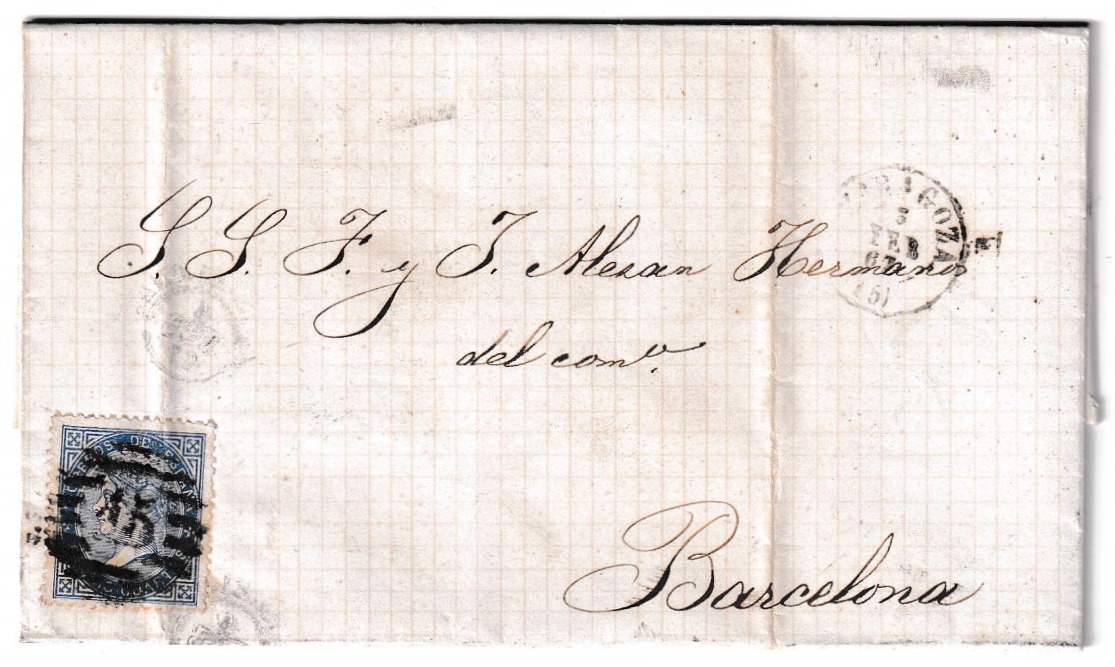 S. S. F. y J. Alexan Hermanos
del com.º
Barcelona
ZARAGOZA
FEB
67
(5)
CORREOS DE ESPAÑA
45